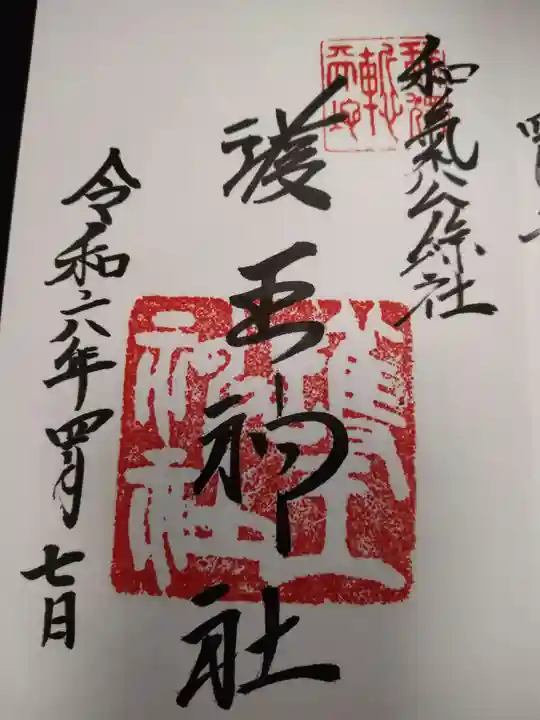 和氣公綜社
護王神社
令和六年四月七日
護王神社